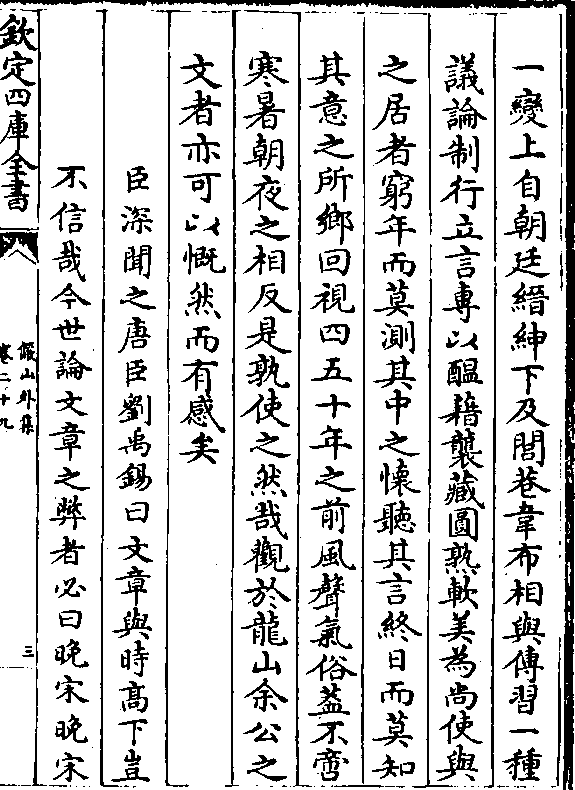 一變上自朝廷縉紳下及閭巷韋布相與傳習一種
議論制行立言專以醞藉襲藏圓熟軟美為尚使與
之居者窮年而莫測其中之懷聽其言終日而莫知
其意之所鄉回視四五十年之前風聲氣俗蓋不啻
寒暑朝夜之相反是孰使之然哉觀於龍山余公之
文者亦可以慨然而有感矣
臣深聞之唐臣劉禹錫曰文章與時髙下豈
不信哉今世論文章之弊者必曰晚宋晚宋
欽定四庫全書
儼山外集
卷二十九
三